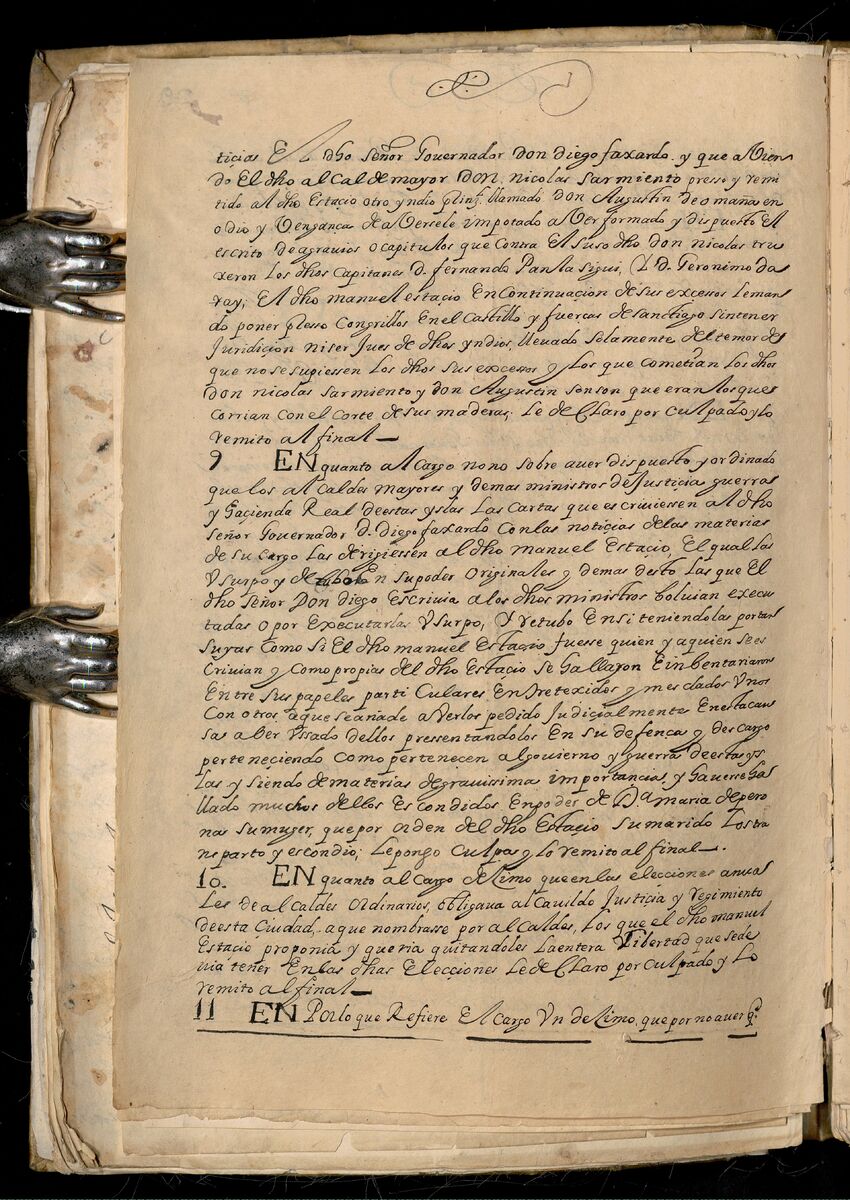 ticias El dho señor Gouernador Don diego faxardo y que avien
do El dho al Calde mayor Don nicolas sarmiento presso y remi
tido al dho Estacio otro yndio llamado Don Augustin de omaña en
odio y Vengança de aVersele imputado aVer formado y dispuesto El
escrito de agravios o capitulos que Contra El suso dho don nicolas tru
xeron Los dhos Capitanes D. fernando Panla sigui, y D. Geronimo da
ray; El dho manuel estacio En Continuacion de sus excessos Leman
do poner presso Congrillos En el Castillo y fuerças de sanctiago sintener
Juridicion niser Jues de dhos yndios, lleuado solamente del temor de
que nose supiessen Los dhos sus excessos y Los que cometian Los dhos
Don nicolas sarmiento y Don Augustin sonson que eran Los que
Corrian con el corte de sus maderas; Le deClaro por Culpado y lo
remito al final
9 EN quanto al Cargo nono sobre auer dispuesto y ordinado
que los al Caldes mayores y demas ministros de Justicia guerra
y Haçienda Real de estas yslas Las Cartas que escriuiessen al dho
señor Gouernador D. Diego faxardo Con las noticias de las materias
de su cargo Las dirigiessen al dho manuel Estacio, El qual las
Vsurpo y En supoder originales y demas desto Las que El
dho señor Don diego Escriuia a los dhos ministros boluian execu
tadas o por Executarlas Vsurpo, y retubo En si teniendolas por tan
suyas Como si El dho manuel Estacio fuesse quien y aquien se es
Criuian y Como propias del dho Estacio se Hallaron E inbentariaron
Entre sus papeles parti Culares Entretexidos y mesclados Vnos
Con otros, a que se añade aVerlos pedido Judicialmente En esta cau
sa aber Vssado dellos pressentandolos En su defença y descargo
perteneciendo como pertenecen al gouierno y guerra de estas ys
Las y siendo de materias de grauissima importancia, y Hauerse Ha
llado muchos dellos Escondidos En poder de Da maria de pero
nas sumuger, que por orden del dho Estacio sumarido Los tra
ne parto y escondio; Le pongo Culpa y lo remito al final
10. EN quanto al Cargo deCimo que en las elecciones anua
Les de al Caldes ordinarios, obligaua al Cauildo Justicia y regimiento
deesta Ciudad, a que nombrasse por al Caldes, Los que el dho manuel
Estacio proponia y queria quitandoles La entera Libertad que sede
uia tener En las dhas Elecciones Le deClaro por culpado y Lo
remito al final
11 EN Porlo que Refiere El Cargo Vn deCimo, que por no auer q.